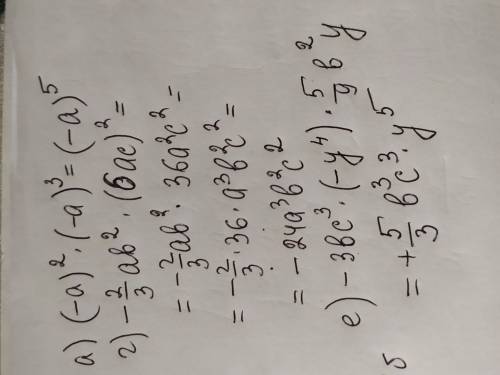 а) (-a)² · (-a)³ = (-a)⁵
г) -2/3 ab² · (6ac)² =
= -2/3 ab² · 36a²c² =
= -2/3 · 36 · a³b²c² =
= -24a³b²c²
е) -3bc³ · (-y⁴) · 5/9 b² y
= + 5/3 b³c³ · y⁵
5